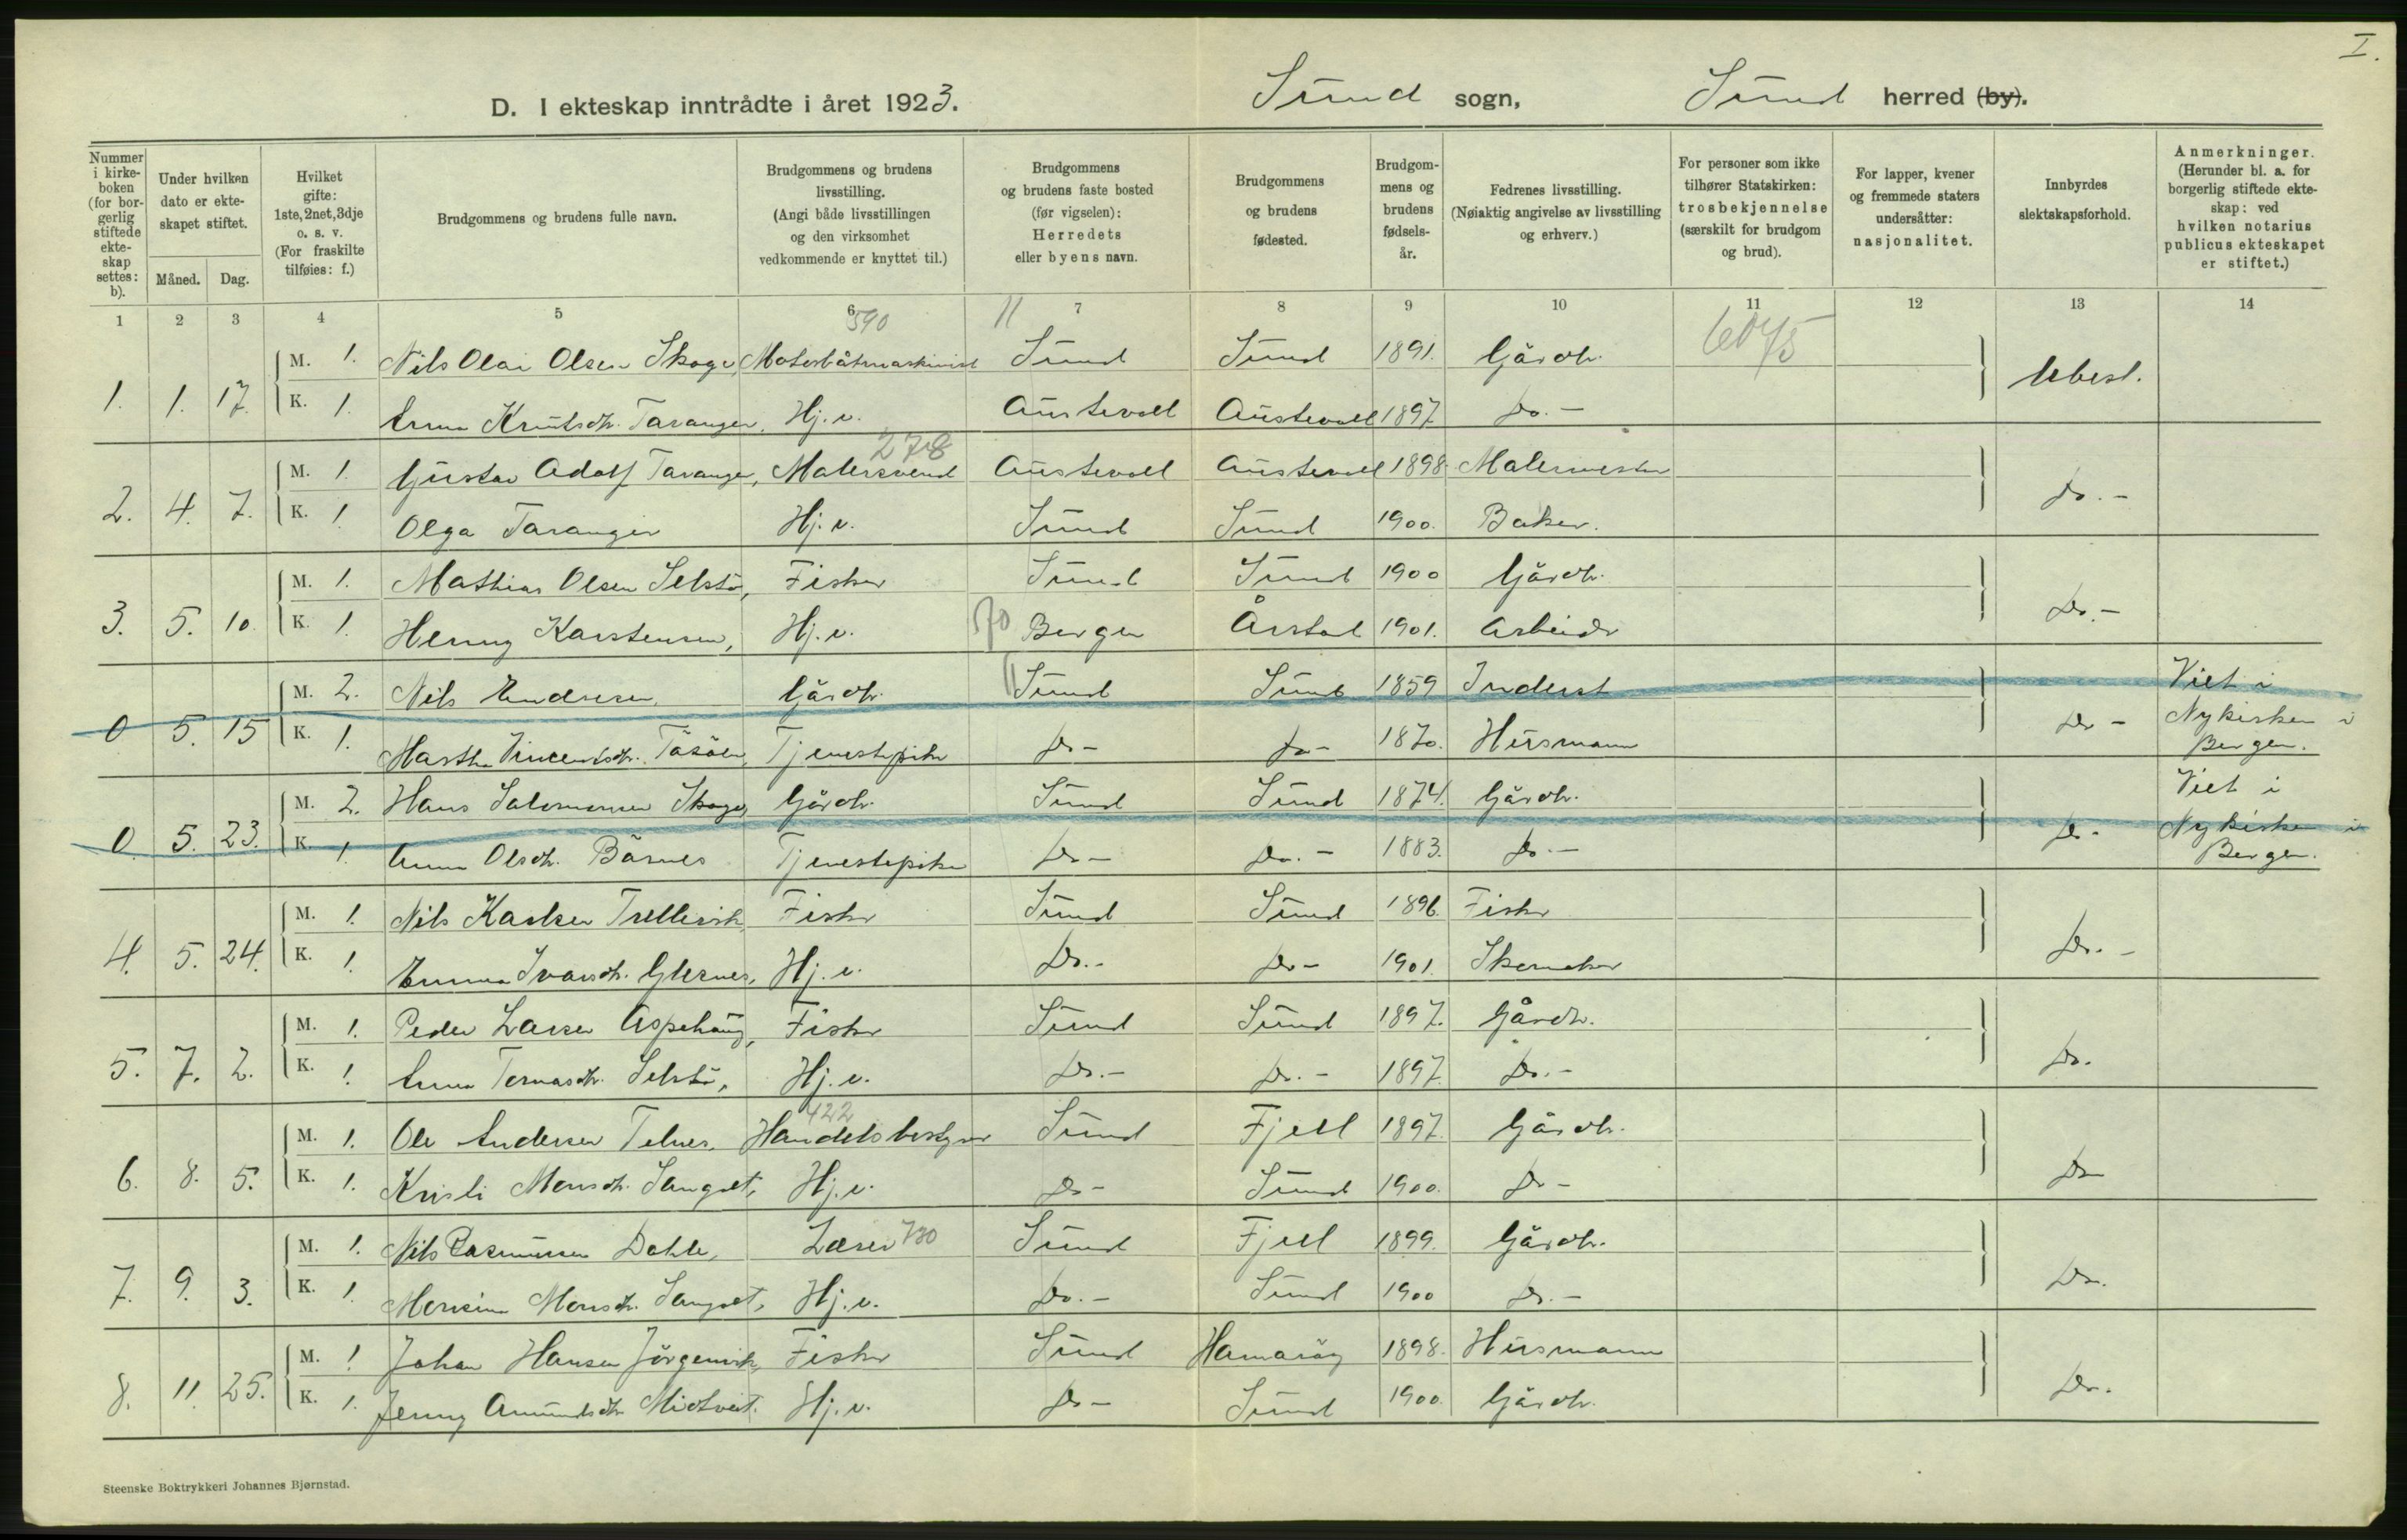 I.
D. I ekteskap inntrådte i året 1923. Sund sogn, Sund herred (by).
Nummer i kirkeboken (for borgerlig stiftede ekteskap settes: b).
Under hvilken dato er ekteskapet stiftet.
Måned. Dag.
Hvilket gifte: 1ste, 2net, 3dje o. s. v. (For fraskilte tilføies: f.)
Brudgommens og brudens fulle navn.
Brudgommens og brudens livsstilling. (Angi både livsstillingen og den virksomhet vedkommende er knyttet til.)
Brudgommens og brudens faste bosted (før vigselen): Herredets eller byens navn.
Brudgommens og brudens fødested.
Brudgommens og brudens fødselsår.
Fedrenes livsstilling. (Nøiaktig angivelse av livsstilling og erhverv.)
For personer som ikke tilhører Statskirken: trosbekjennelse (særskilt for brudgom og brud).
For lapper, kvener og fremmede staters undersåtter: nasjonalitet.
Innbyrdes slektskapsforhold.
Anmerkninger. (Herunder bl. a. for borgerlig stiftede ekteskap: ved hvilken notarius publicus ekteskapet er stiftet.)
1 2 3 4 5 6 7 8 9 10 11 12 13 14
590 11
M. 1. Nils Olai Olsen Skoge, Motorbåtmaskinist Sund Sund 1891. Gårdbr.
1. 1. 17. Ubesl.
K. 1. Anna Knutsdtr. Taranger, Hj. v. Austevoll Austevoll 1897 Do.-
278
M. 1. Gustav Adolf Taranger, Malersvend Austevoll Austevoll 1898. Malermester
2. 4. 7. Do.-
K. 1. Olga Taranger Hj. v. Sund Sund 1900. Baker.
M. 1. Mathias Olsen Selstö, Fisker Sund Sund 1900 Gårdbr.
3. 5. 10. Do.-
K. 1. Henny Karstensen, Hj. v. 70 Bergen Årstad 1901. Arbeider
M. 2. Nils Endresen, Gårdbr. 11 Sund Sund 1859 Inderst Viet i
0 5. 15 Do - Nykirken i
K. 1. Martha Vincentsdtr. Tjenestepike Do- Do- 1870. Husmann Bergen.
M. 2. Hans Salomonsen Skoge, Gårdbr. Sund Sund 1874. Gårdbr. Viet i
0. 5. 23. Do- Nykirken i
K. 1. Anna Olsdtr. Bårnes Tjenestepike Do- Do.- 1883. Do.- Bergen.
M. 1. Nils Karlsen Trellevik Fisker Sund Sund 1896. Fisker
4. 5. 24. Do.-
K. 1. Emma Ivarsdtr. Glesnes, Hj. v. Do.- Do- 1901. Skomaker
M. 1. Peder Larsen Aspehaug, Fisker Sund Sund 1897. Gårdbr.
5. 7. 2. Do.
K. 1. Anna Tomasdtr. Selstö, Hj. v. Do.- Do.- 1897. Do.-
422
M. 1. Ole Andersen Telnes, Handelsbestyrer Sund Fjell 1897. Gårdbr.
6. 8. 5. Do
K. 1. Kristi Monsdtr. Sangolt, Hj. v. Do- Sund 1900. Do-
M. 1. Nils Rasmussen Dahle, Lærer 730 Sund Fjell 1899. Gårdbr.
7. 9. 3. Do.
K. 1. Monsina Monsdtr. Sangolt, Hj. v. Do.- Sund 1900 Do.-
M. 1. Johan Hansen Jörgenvik, Fisker Sund Hamaröy 1898. Husmann
8. 11. 25. Do.
K. 1. Jenny Amundsdtr. Midtveit. Hj. v. Do- Sund 1900. Gårdbr.
Steenske Boktrykkeri Johannes Bjørnstad.